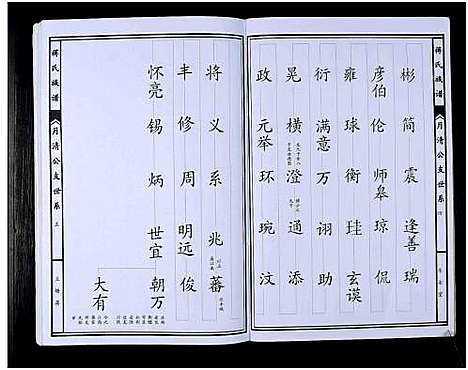 蒋氏族谱
《月清公支世系
四
彬 简 震 逢善 瑞
彦伯 伦 师皋 琼 侃
雍 球 衡 珪 玄谟
衍 满意 万 诩 助
晃 横 澄 通 添
政 元举 环 琬 汶
将 义 系 兆 蕃
丰 修 周 明远 俊
怀亮 锡 炳 世宜 朝万
大有
蒋氏族谱
《月清公支世系
五